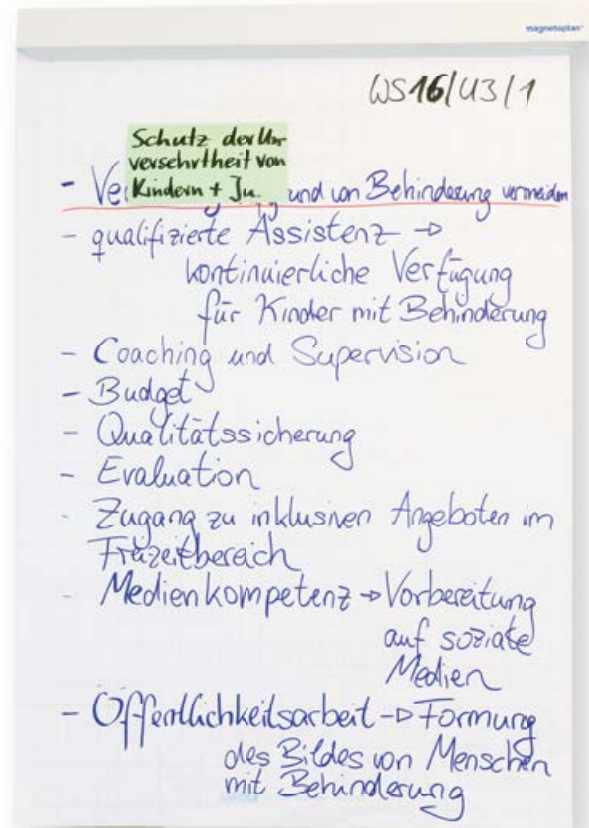 magnetoplan
WS16/U3/1
Schutz der Un-
versehrtheit von
Kindern + Ju.
- Ve und von Behinderung vermeiden
- qualifizierte Assistenz →
kontinuierliche Verfügung
für Kinder mit Behinderung
- Coaching und Supervision
- Budget
- Qualitätssicherung
- Evaluation
- Zugang zu inklusiven Angeboten im
Freizeitbereich
- Medienkompetenz → Vorbereitung
auf soziale
Medien
- Öffentlichkeitsarbeit → Formung
des Bildes von Menschen
mit Behinderung